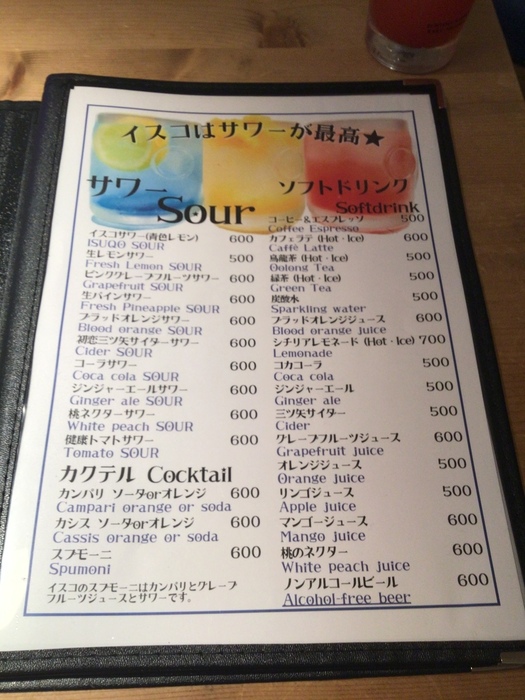 イスコはサワーが最高★
サワー
Sour
イスコサワー(青色レモン) 600
ISUQO SOUR
生レモンサワー 500
Fresh Lemon SOUR
ピンクグレープフルーツサワー 600
Grapefruit SOUR
生パインサワー 600
Fresh Pineapple SOUR
ブラッドオレンジサワー 600
Blood orange SOUR
初恋三ツ矢サイダーサワー 600
Cider SOUR
コーラサワー 600
Coca cola SOUR
ジンジャーエールサワー 600
Ginger ale SOUR
桃ネクターサワー 600
White peach SOUR
健康トマトサワー 600
Tomato SOUR
カクテル Cocktail
カンパリ ソータorオレンジ 600
Campari orange or soda
カシス ソータorオレンジ 600
Cassis orange or soda
スプモーニ 600
Spumoni
イスコのスプモーニはカンパリとグレープ
フルーツジュースとサワーです。
ソフトドリンク
Softdrink
コーヒー&エスプレッソ 500
Coffee Espresso
カフェラテ (Hot・Ice) 600
Caffè Latte
烏龍茶 (Hot・Ice) 500
Oolong Tea
緑茶 (Hot・Ice) 500
Green Tea
炭酸水 500
Sparkling water
ブラッドオレンジジュース 600
Blood orange juice
シチリアレモネード (Hot・Ice) 700
Lemonade
コカコーラ 500
Coca cola
ジンジャーエール 500
Ginger ale
三ツ矢サイダー 500
Cider
グレープフルーツジュース 600
Grapefruit juice
オレンジジュース 500
Orange juice
リンゴジュース 500
Apple juice
マンゴージュース 600
Mango juice
桃のネクター 600
White peach juice
ノンアルコールビール 600
Alcohol-free beer